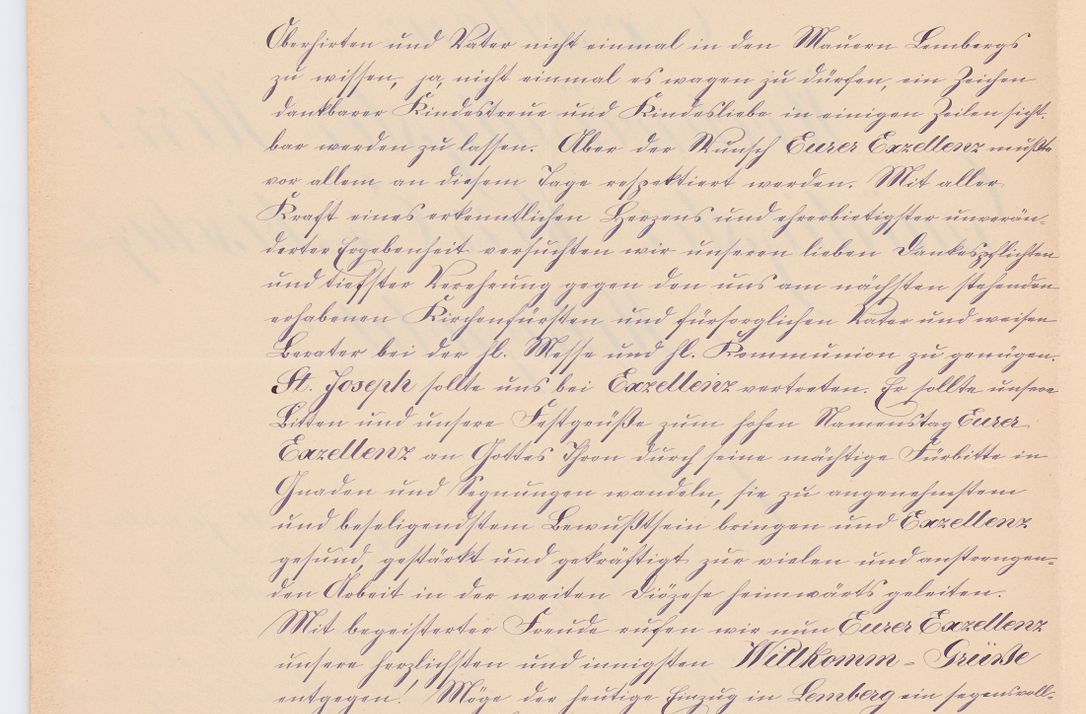 Oberhirten und Vater nicht einmal in den Mauern Lembergs
zu wissen, ja, nicht einmal es wagen zu dürfen, ein Zeichen
dankbarer Kindestreue und Kindesliebe in einigen Zeilen sicht-
bar werden zu lassen. Aber der Wunsch Eurer Exzellenz mußte
vor allem an diesem Tage respektiert werden. Mit aller
Kraft eines erkenntlichen Herzens und ehrerbietigster unverän-
derter Ergebenheit versuchten wir unseren lieben Dankespflichten
und tiefster Verehrung gegen den uns am nächsten stehenden
erhabenen Kirchenfürsten und fürsorglichen Vater und weisen
Berater bei der hl. Messe und hl. Kommunion zu genügen.
St. Joseph sollte uns bei Exzellenz vertreten. Er sollte unsere
Bitten und unsere Festgrüße zum hohen Namenstag Eurer
Exzellenz an Gottes Thron durch seine mächtige Fürbitte in
Gnaden und Segnungen wandeln, sie zu angenehmstem
und beseligendstem Bewußtsein bringen und Exzellenz
gesund, gestärkt und gekräftigt zur vielen und anstrengen-
den Arbeit in der weiten Diözese heimwärts geleiten.
Mit begeisterter Freude rufen wir nun Eurer Exzellenz
unsere herzlichsten und innigsten Willkomm-Grüße
entgegen! Möge der heutige Einzug in Lemberg ein segensvoll-